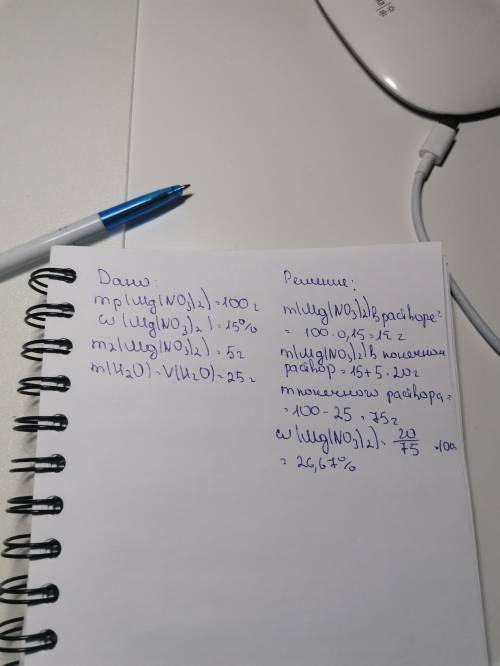 Дано:
mр(Mg(NO3)2)=100г
ω(Mg(NO3)2)=15%
m2(Mg(NO3)2)=5г
m(H2O)=V(H2O)=25г
Решение:
m(Mg(NO3)2)в растворе=
=100·0,15=15г
m(Mg(NO3)2)в конечном
раствор=15+5=20г
m конечного раствора=
=100-25=75г
ω(Mg(NO3)2)=20/75·100=
=26,67%